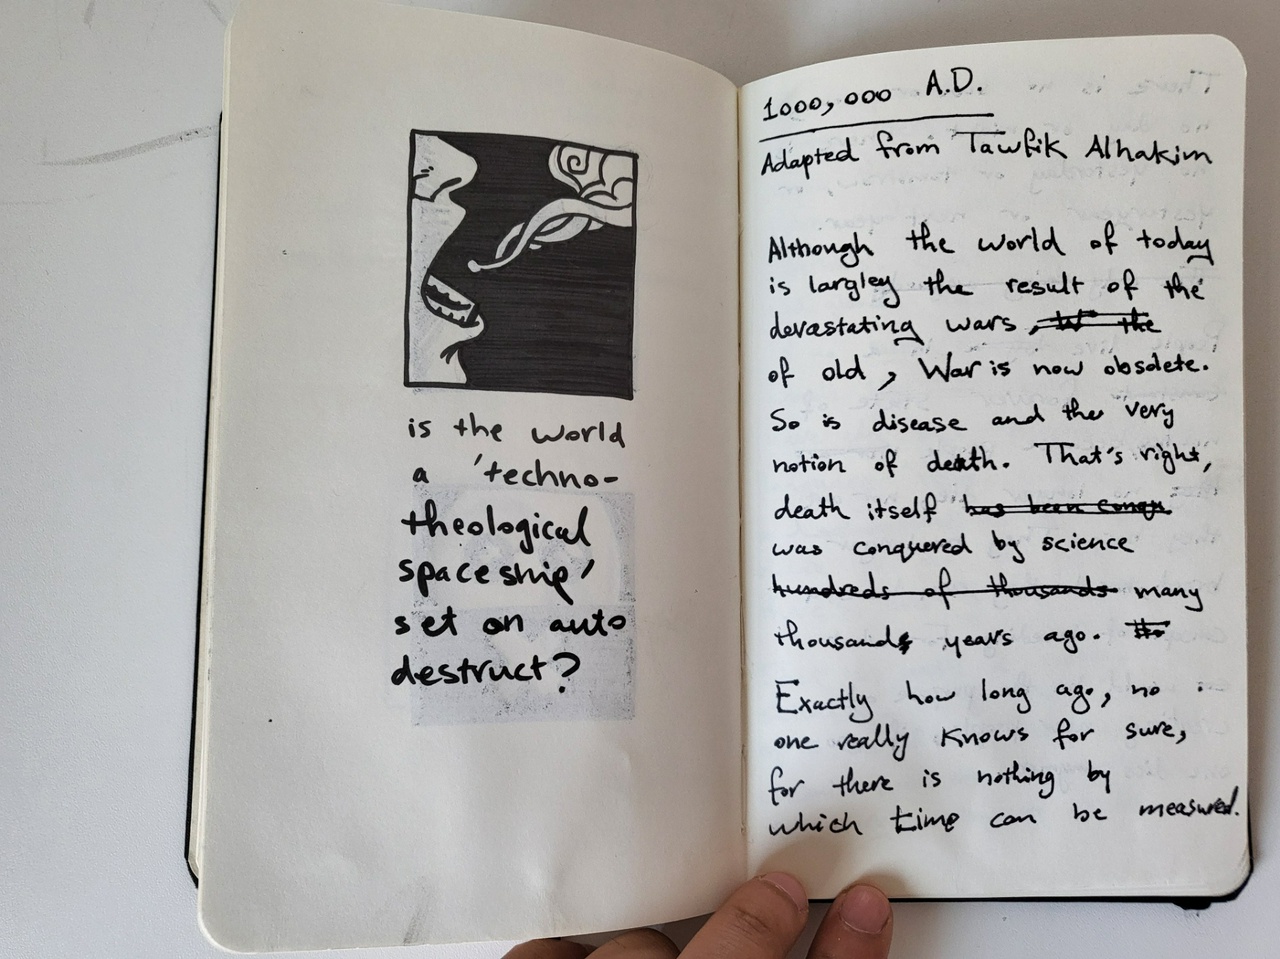 is the world
a 'techno-
theological
spaceship'
set on auto
destruct?
1000,000 A.D.
Adapted from Tawfik Alhakim
Although the world of today
is largley the result of the
devastating wars, W the
of old, War is now obsolete.
So is disease and the very
notion of death. That's right,
death itself has been conqu
was conquered by science
hundreds of thousands many
thousands years ago.
Exactly how long ago, no
one really knows for sure,
for there is nothing by
which time can be measured.